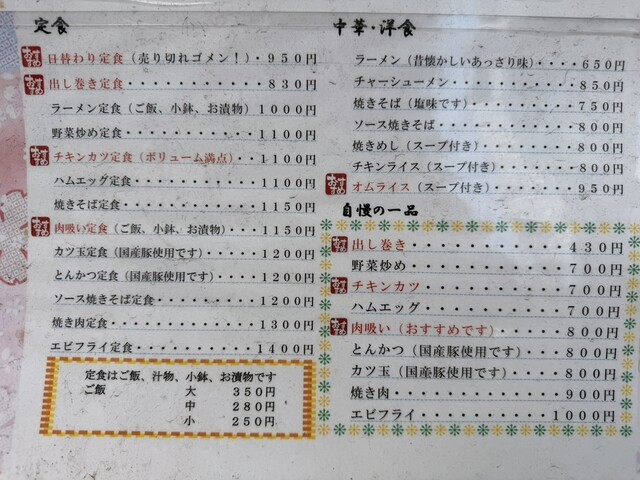 定食
おすすめ 日替わり定食（売り切れゴメン！）・９５０円
おすすめ 出し巻き定食・・・・・・・・・・８３０円
ラーメン定食（ご飯、小鉢、お漬物）１０００円
野菜炒め定食・・・・・・・・・・１１００円
おすすめ チキンカツ定食（ボリューム満点）・・１１００円
ハムエッグ定食・・・・・・・・・１１００円
焼きそば定食・・・・・・・・・・１１５０円
おすすめ 肉吸い定食（ご飯、小鉢、お漬物）・１１５０円
カツ玉定食（国産豚使用です）・・・１２００円
とんかつ定食（国産豚使用です）・・１２００円
ソース焼きそば定食・・・・・・・１２００円
焼き肉定食・・・・・・・・・・・１３００円
エビフライ定食・・・・・・・・・１４００円
定食はご飯、汁物、小鉢、お漬物です
ご飯 大 ３５０円
中 ２８０円
小 ２５０円
中華・洋食
ラーメン（昔懐かしいあっさり味）・・・・６５０円
チャーシューメン・・・・・・・・・・・８５０円
焼きそば（塩味です）・・・・・・・・・７５０円
ソース焼きそば・・・・・・・・・・・・８００円
焼きめし（スープ付き）・・・・・・・・８００円
チキンライス（スープ付き）・・・・・・８００円
おすすめ オムライス（スープ付き）・・・・・・・９５０円
自慢の一品
おすすめ 出し巻き・・・・・・・・・・・・４３０円
野菜炒め・・・・・・・・・・・・７００円
おすすめ チキンカツ・・・・・・・・・・・７００円
ハムエッグ・・・・・・・・・・・７００円
おすすめ 肉吸い（おすすめです）・・・・・８００円
とんかつ（国産豚使用です）・・・８００円
カツ玉（国産豚使用です）・・・・８００円
焼き肉・・・・・・・・・・・・・９００円
エビフライ・・・・・・・・・・１０００円